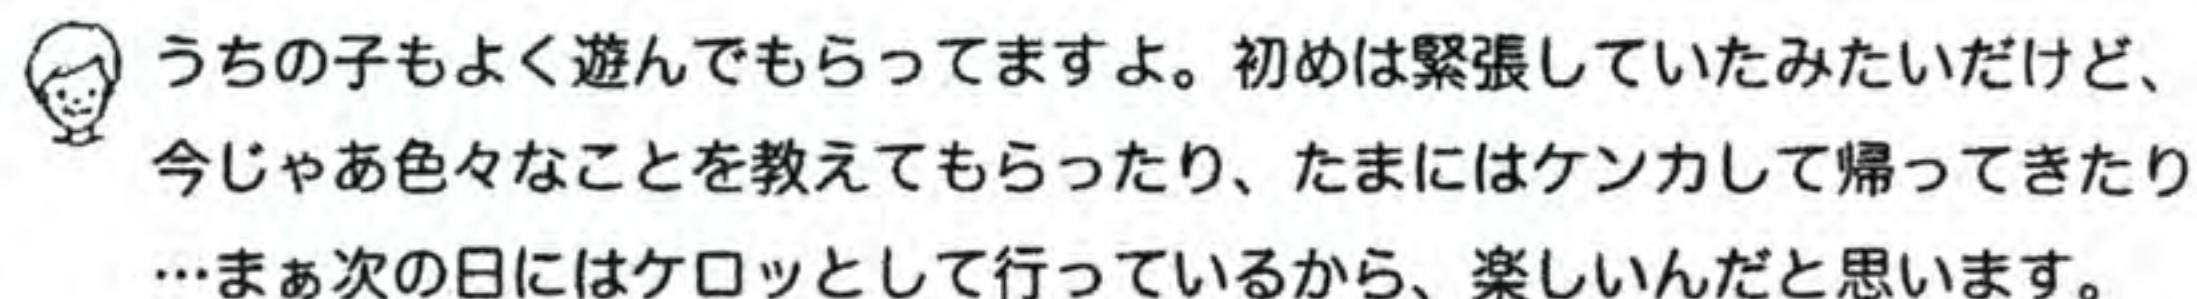 うちの子もよく遊んでもらってますよ。初めは緊張していたみたいだけど、
今じゃあ色々なことを教えてもらったり、たまにはケンカして帰ってきたり
…まぁ次の日にはケロッとして行っているから、楽しいんだと思います。